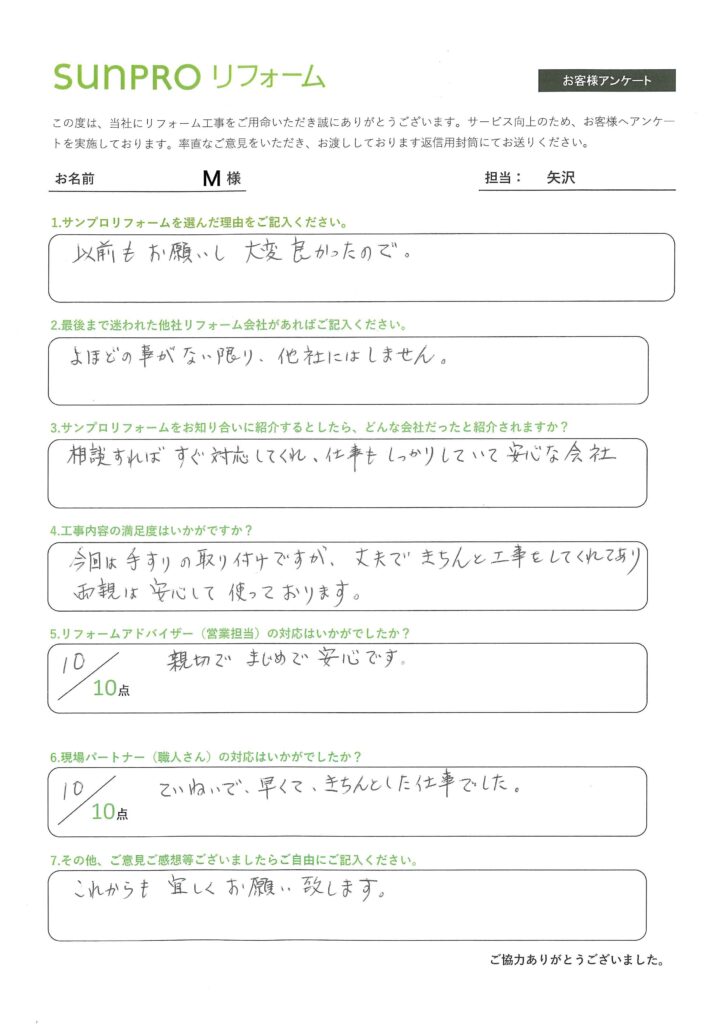 SUNPRO リフォーム
お客様アンケート
この度は、当社にリフォーム工事をご用命いただき誠にありがとうございます。サービス向上のため、お客様へアンケー
トを実施しております。率直なご意見をいただき、お渡ししております返信用封筒にてお送りください。
お名前 M 様 担当： 矢沢
1.サンプロリフォームを選んだ理由をご記入ください。
以前も お願いし 大変 良かったので。
2.最後まで迷われた他社リフォーム会社があればご記入ください。
よほどの事がない限り、他社にはしません。
3.サンプロリフォームをお知り合いに紹介するとしたら、どんな会社だったと紹介されますか？
相談すれば すぐ対応してくれ、仕事も しっかりしていて 安心な会社
4.工事内容の満足度はいかがですか？
今回は 手すりの取り付けですが、丈夫で きちんと工事をしてくれてあり
両親は 安心して 使っております。
5.リフォームアドバイザー（営業担当）の対応はいかがでしたか？
10／10点 親切で まじめで 安心です。
6.現場パートナー（職人さん）の対応はいかがでしたか？
10／10点 ていねいで、早くて、きちんとした仕事でした。
7.その他、ご意見ご感想等ございましたらご自由にご記入ください。
これからも 宜しく お願い 致します。
ご協力ありがとうございました。